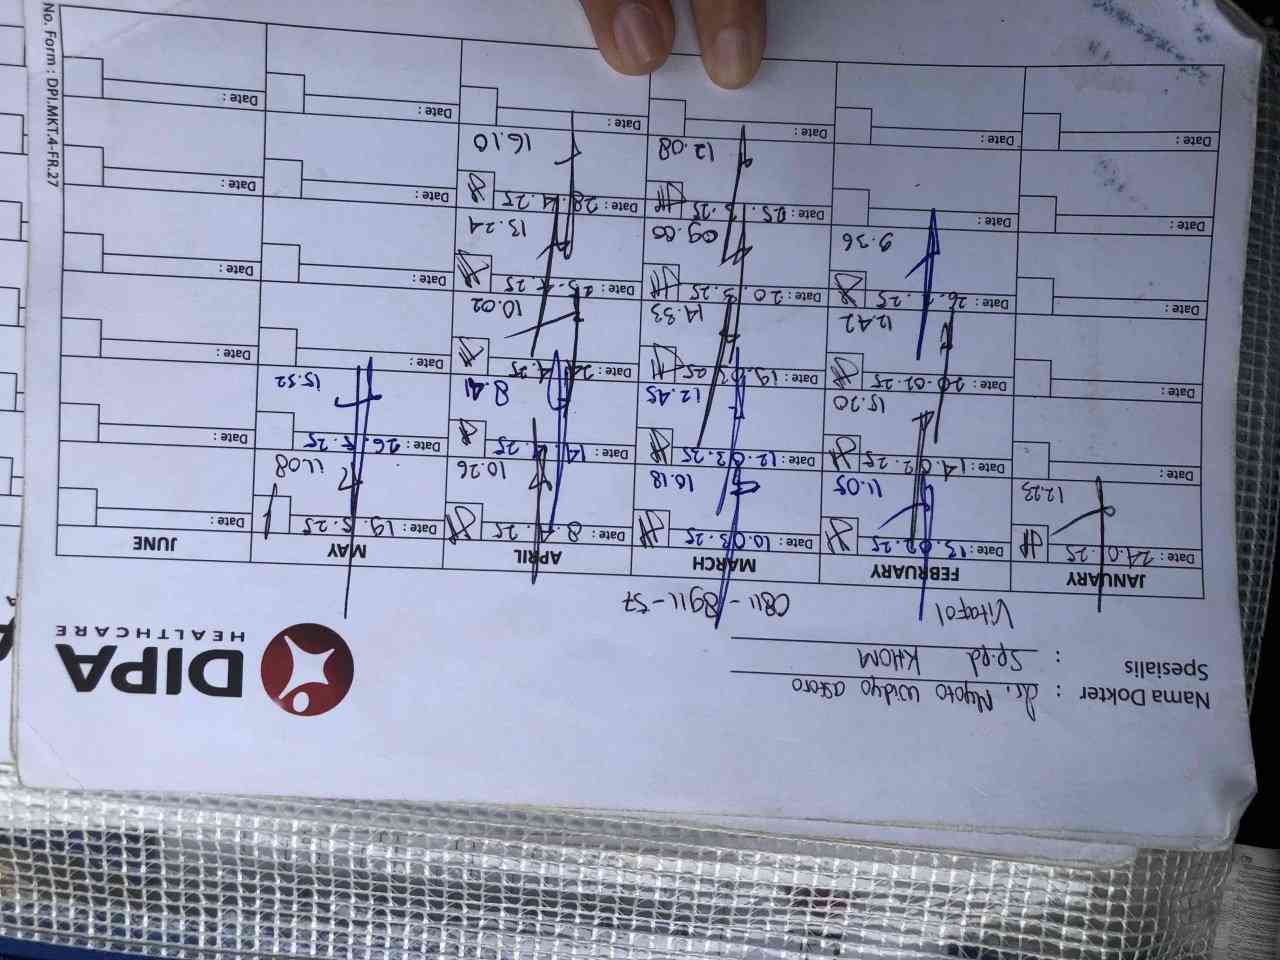 DIPA
HEALTHCARE
Nama Dokter : dr. Nyoto widyo astoro
Spesialis : Sp.Pd KHOM
Vitafol 0811-8911-57
JANUARY FEBRUARY MARCH APRIL MAY JUNE
Date : 24.0 .25 Date : 13.02.25 Date : 10.03.25 Date : 8. .25 Date : 19.5.25 Date :
12.23 11.05 10.18 10.26 11.08
Date : Date : 14.02.25 Date : 12.03.25 Date : 14. .25 Date : 26.5.25 Date :
15.20 12.45 8.41 15.52
Date : Date : 20.02.25 Date : 19.03.25 Date : 21.4.25 Date : Date :
12.42 14.33 10.02
Date : Date : 26. .25 Date : 20.3.25 Date : .25 Date : Date :
9.36 09.00 13.24
Date : Date : Date : 25. .25 Date : 28.4.25 Date : Date :
12.08 16.10
Date : Date : Date : Date : Date : Date :
No. Form : DPI.MKT.4-FR.27